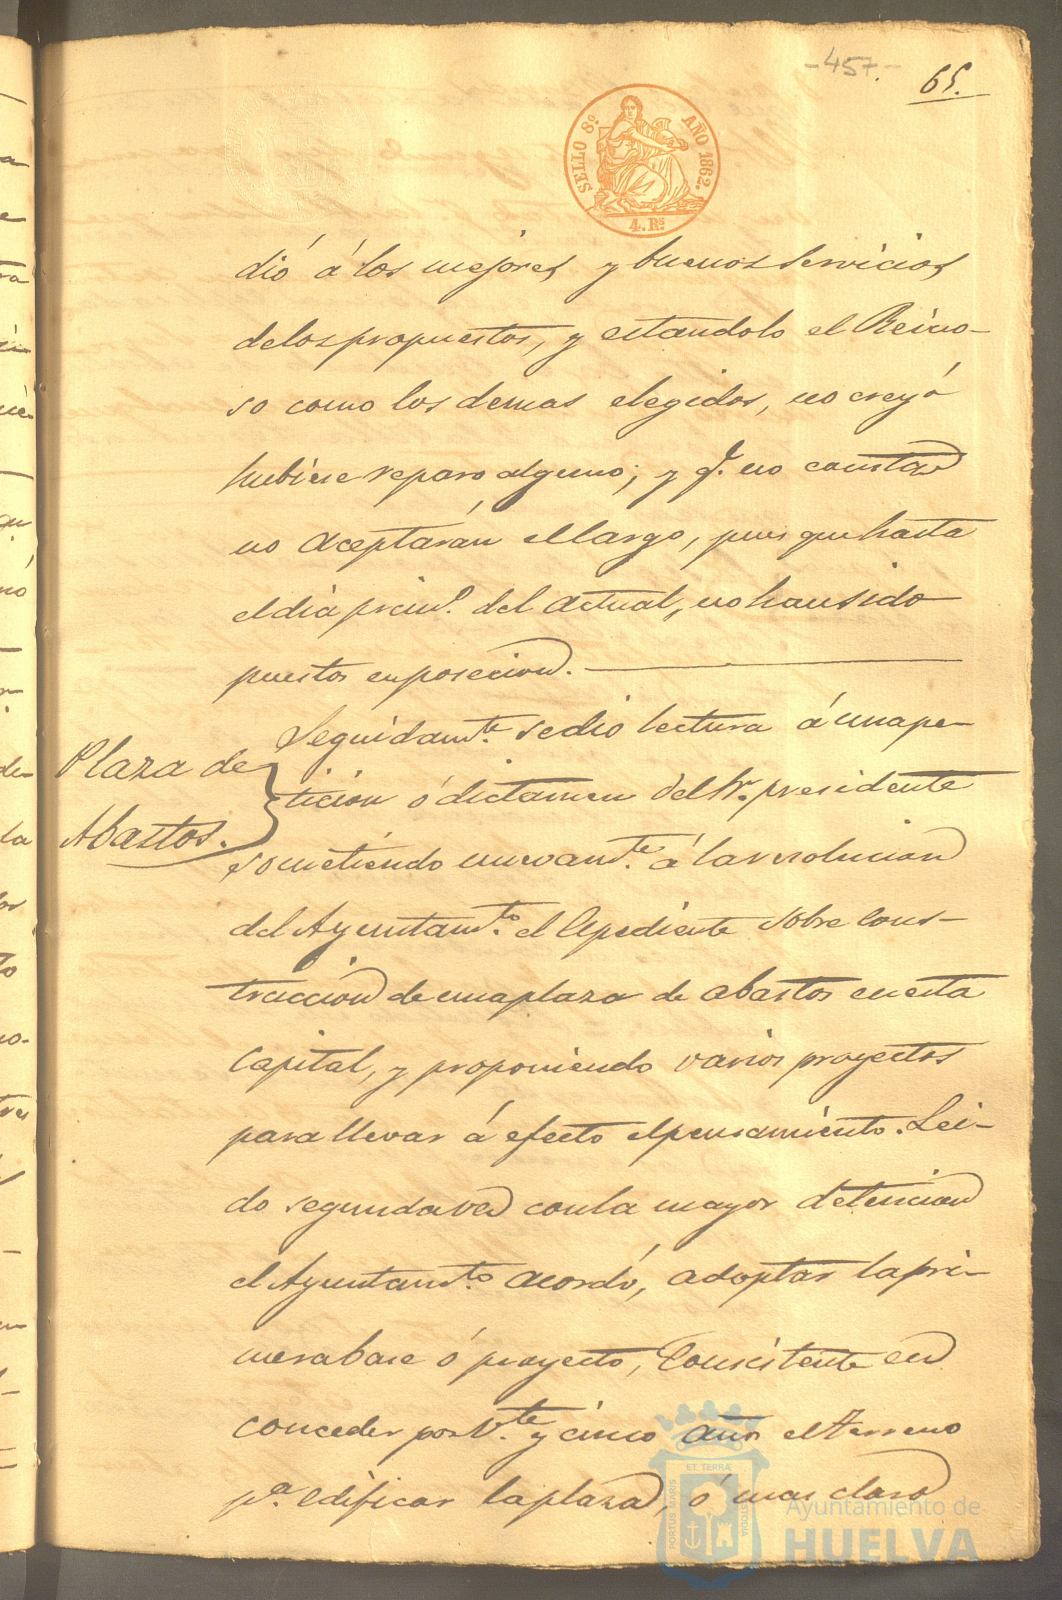 -457.-
65.
SELLO 8º AÑO 1862.
4. Rs
dió á los mejores y buenos servicios
delos propuestos, y estandolo el Reino-
so como los demas elegidos, no creyó
hubiese reparo alguno; y q.e no constad
no aceptarán el Cargo, pues que hasta
el dia prim.º del actual, no han sido
puestos en posecion.
Plaza de
Abastos.
Seguidamte. se dio lectura á una pe-
ticion ó dictamen del Sr. presidente
sometiendo nuevamte. á la resolucion
del Ayuntamto. el Espediente sobre cons-
truccion de una plaza de abastos en esta
Capital, y proponiendo varios proyectos
para llevar á efecto el pensamiento. Lei-
do segunda vez con la mayor detencion
el Ayuntamto. acordó, adoptar la pri-
mera base ó proyecto, Consistente en
conceder por Vte. y cinco años el terreno
pa. edificar la plaza, ó mas claro
PORTUS MARIS ET TERRAE CUSTODIA
Ayuntamiento de
HUELVA